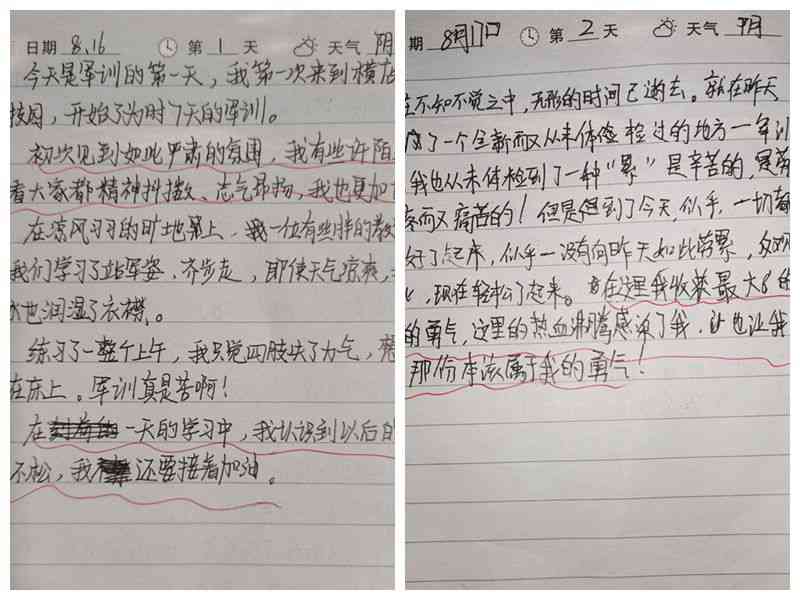 日期 8.16 第 1 天 天气 阴
今天是军训的第一天，我第一次来到横店
校园，开始了为时7天的军训。
初次见到如此严肃的氛围，我有些许陌
看大家都精神抖擞、志气昂扬，我也更加
在凉风习习的旷地累上，我一位有些胖的教
我们学习了站军姿、齐步走，即使天气凉爽，
水也润湿了衣襟、。
练习了一整个上午，我只觉四肢失了力气，
在床上。军训真是苦啊！
在一天的学习中，我认识到以后的
不松，我还要接着加油。
期 8月17日 第 2 天 天气 阴
在不知不觉之中，无形的时间已逝去。就在昨天
了一个全新而又从未体验检过的地方一军训
我也从未体检到了一种“累”是辛苦的，是
而又痛苦的！但是但到了今天，似乎，一切都
好了起来，似乎一没有向昨天如此劳累，
，现在轻松了起来。在这里我收获最大的
的勇气，这里的热血沸腾感染了我，让也让我
那份本该属于我的勇气！